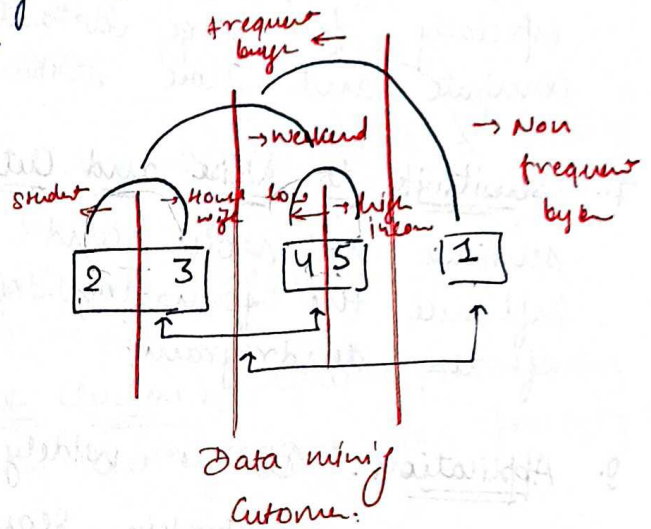 frequent
buyer ←
→ Weekend
→ Non
frequent
buyer
Student
←
→ House
wife
low
←
→ high
income
2 3
4 5
1
Data mining
Cutomer.